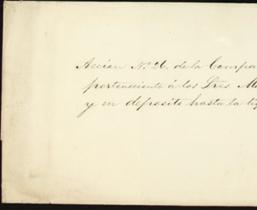 Accion Nº 26. de la Compa
perteneciente á los Sres. M
y en deposito hasta la